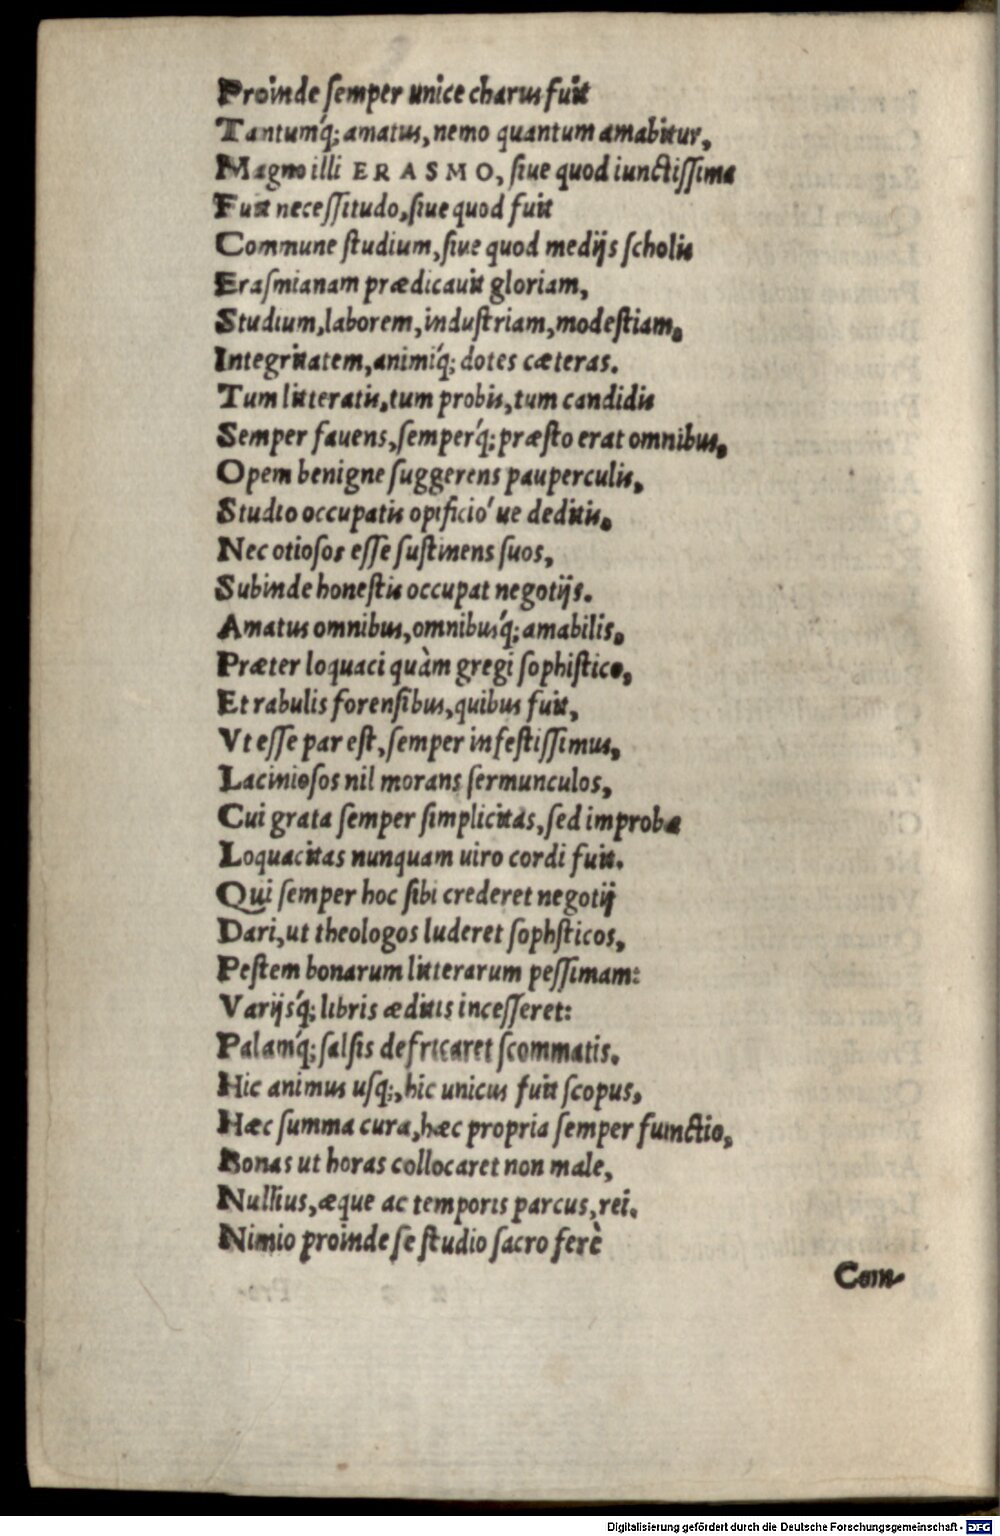 Proinde ſemper unice charus fuit
Tantumq́; amatus, nemo quantum amabitur,
Magno illi ERASMO, ſiue quod iunctiſſima
Fuit neceſſitudo, ſiue quod fuit
Commune ſtudium, ſiue quod medijs ſcholis
Eraſmianam prædicauit gloriam,
Studium, laborem, induſtriam, modeſtiam,
Integritatem, animiq́; dotes cæteras.
Tum litteratis, tum probis, tum candidis
Semper fauens, ſemperq́; præſto erat omnibus,
Opem benigne ſuggerens pauperculis,
Studio occupatis opificio´ue deditis,
Nec otioſos eſſe ſuſtinens ſuos,
Subinde honeſtis occupat negotijs.
Amatus omnibus, omnibusq́; amabilis,
Præter loquaci quàm gregi ſophiſtico,
Et rabulis forenſibus, quibus fuit,
Vt eſſe par eſt, ſemper infeſtiſſimus,
Lacinioſos nil morans ſermunculos,
Cui grata ſemper ſimplicitas, ſed improbæ
Loquacitas nunquam uiro cordi fuit.
Qui ſemper hoc ſibi crederet negotij
Dari, ut theologos luderet ſophſticos,
Peſtem bonarum litterarum peſſimam:
Varijsq́; libris æditis inceſſeret:
Palamq́; ſalſis defricaret ſcommatis.
Hic animus uſq;, hic unicus fuit ſcopus,
Hæc ſumma cura, hæc propria ſemper functio,
Bonas ut horas collocaret non male,
Nullius, æque ac temporis parcus, rei.
Nimio proinde ſe ſtudio ſacro ferè
Com-
Digitalisierung gefördert durch die Deutsche Forschungsgemeinschaft - DFG